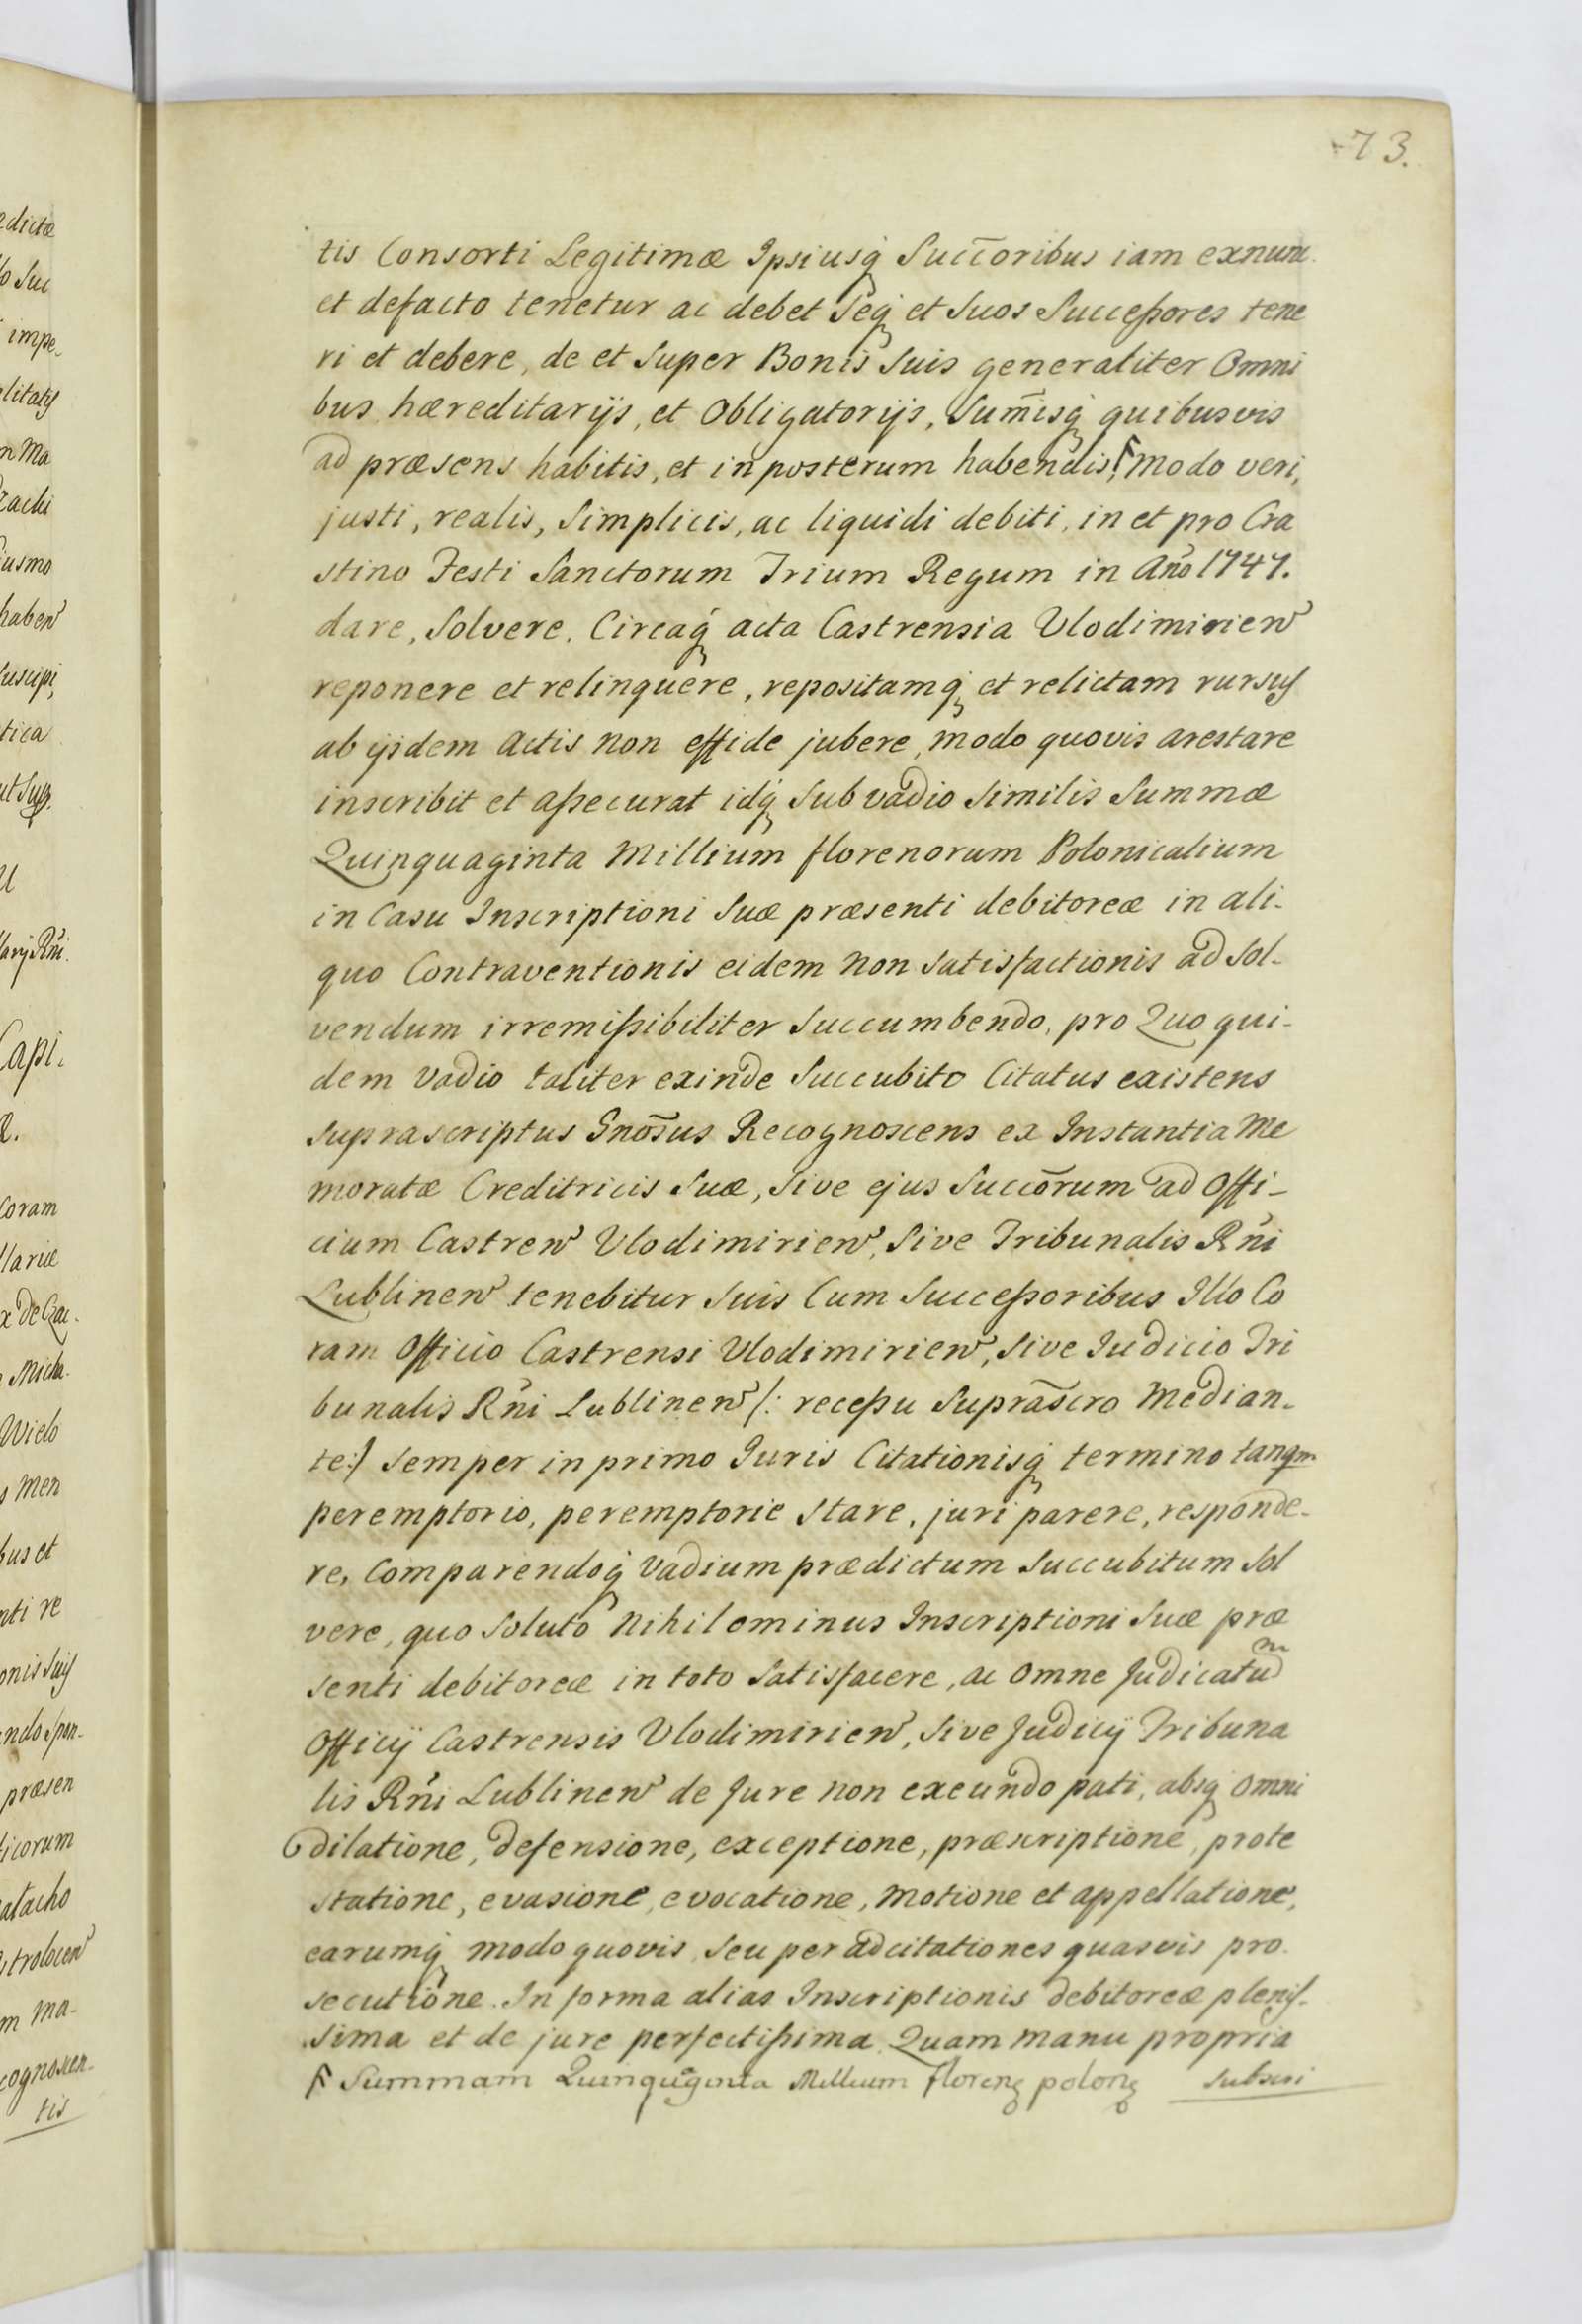 73.
tis Consorti Legitimæ Ipsiusq̃ Succ̃oribus iam exnunc
et defacto tenetur ac debet Seq̃ et Suos Succeßores tene
ri et debere, de et Super Bonis Suis generaliter Omni
bus hæreditarijs, et Obligatorijs, Sum̃isq̃ quibusvis
ad præsens habitis, et in posterum habendis, Modo veri,
justi, realis, Simplicis, ac liquidi debiti, in et pro Cra
stino Festi Sanctorum Trium Regum in Año 1747.
dare, Solvere, Circaq̃ acta Castrensia Vlodimirien
reponere et relinquere, repositamq̃ et relictam rursus
ab ijsdem Actis non effide jubere, modo quovis arestare
inscribit et aßecurat idq̃ Sub vadio Similis Summæ
Quinquaginta Millium florenorum Polonicalium
in Casu Inscriptioni Suæ præsenti debitoreæ in ali-
quo Contraventionis eidem non Satisfactionis ad Sol-
vendum irremißibiliter Succumbendo, pro Quo qui-
dem Vadio taliter exinde Succubito Citatus existens
Suprascriptus Gnõsus Recognoscens ex Instantia Me
moratæ Creditricis Suæ, Sive ejus Succõrum ad Offi-
cium Castren Vlodimirien, Sive Tribunalis Rñi
Lublinen tenebitur Suis Cum Succeßoribus Illo Co
ram Officio Castrensi Vlodimirien, Sive Iudicio Tri
bunalis Rñi Lublinen /: receßu Suprãscro Median-
te :/ Semper in primo Iuris Citationisq̃ termino tanqm
peremptorio, peremptorie Stare, juri parere, responde-
re, Comparendoq̃ Vadium prædictum Succubitum Sol
vere, quo Soluto Nihilominus Inscriptioni Suæ præ
senti debitoreæ in toto Satisfacere, ac Omne Judicatum
Officij Castrensis Vlodimirien, Sive Judicij Tribuna
lis Rñi Lublinen de Jure non exeundo pati, absq̃ Omni
dilatione, defensione, exceptione, præscriptione, prote
statione, evasione, evocatione, Motione et appellatione,
earumq̃ modo quovis, Seu per adcitationes quasvis pro
secutione. In forma alias Inscriptionis debitoreæ plenis-
sima et de jure perfectißima. Quam manu propria
Summam Quinquaginta Millium floren polon Subscri